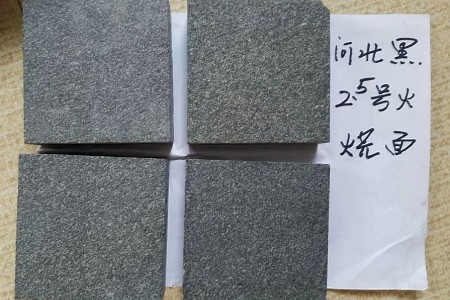 河北黑
2.5号火
烧面